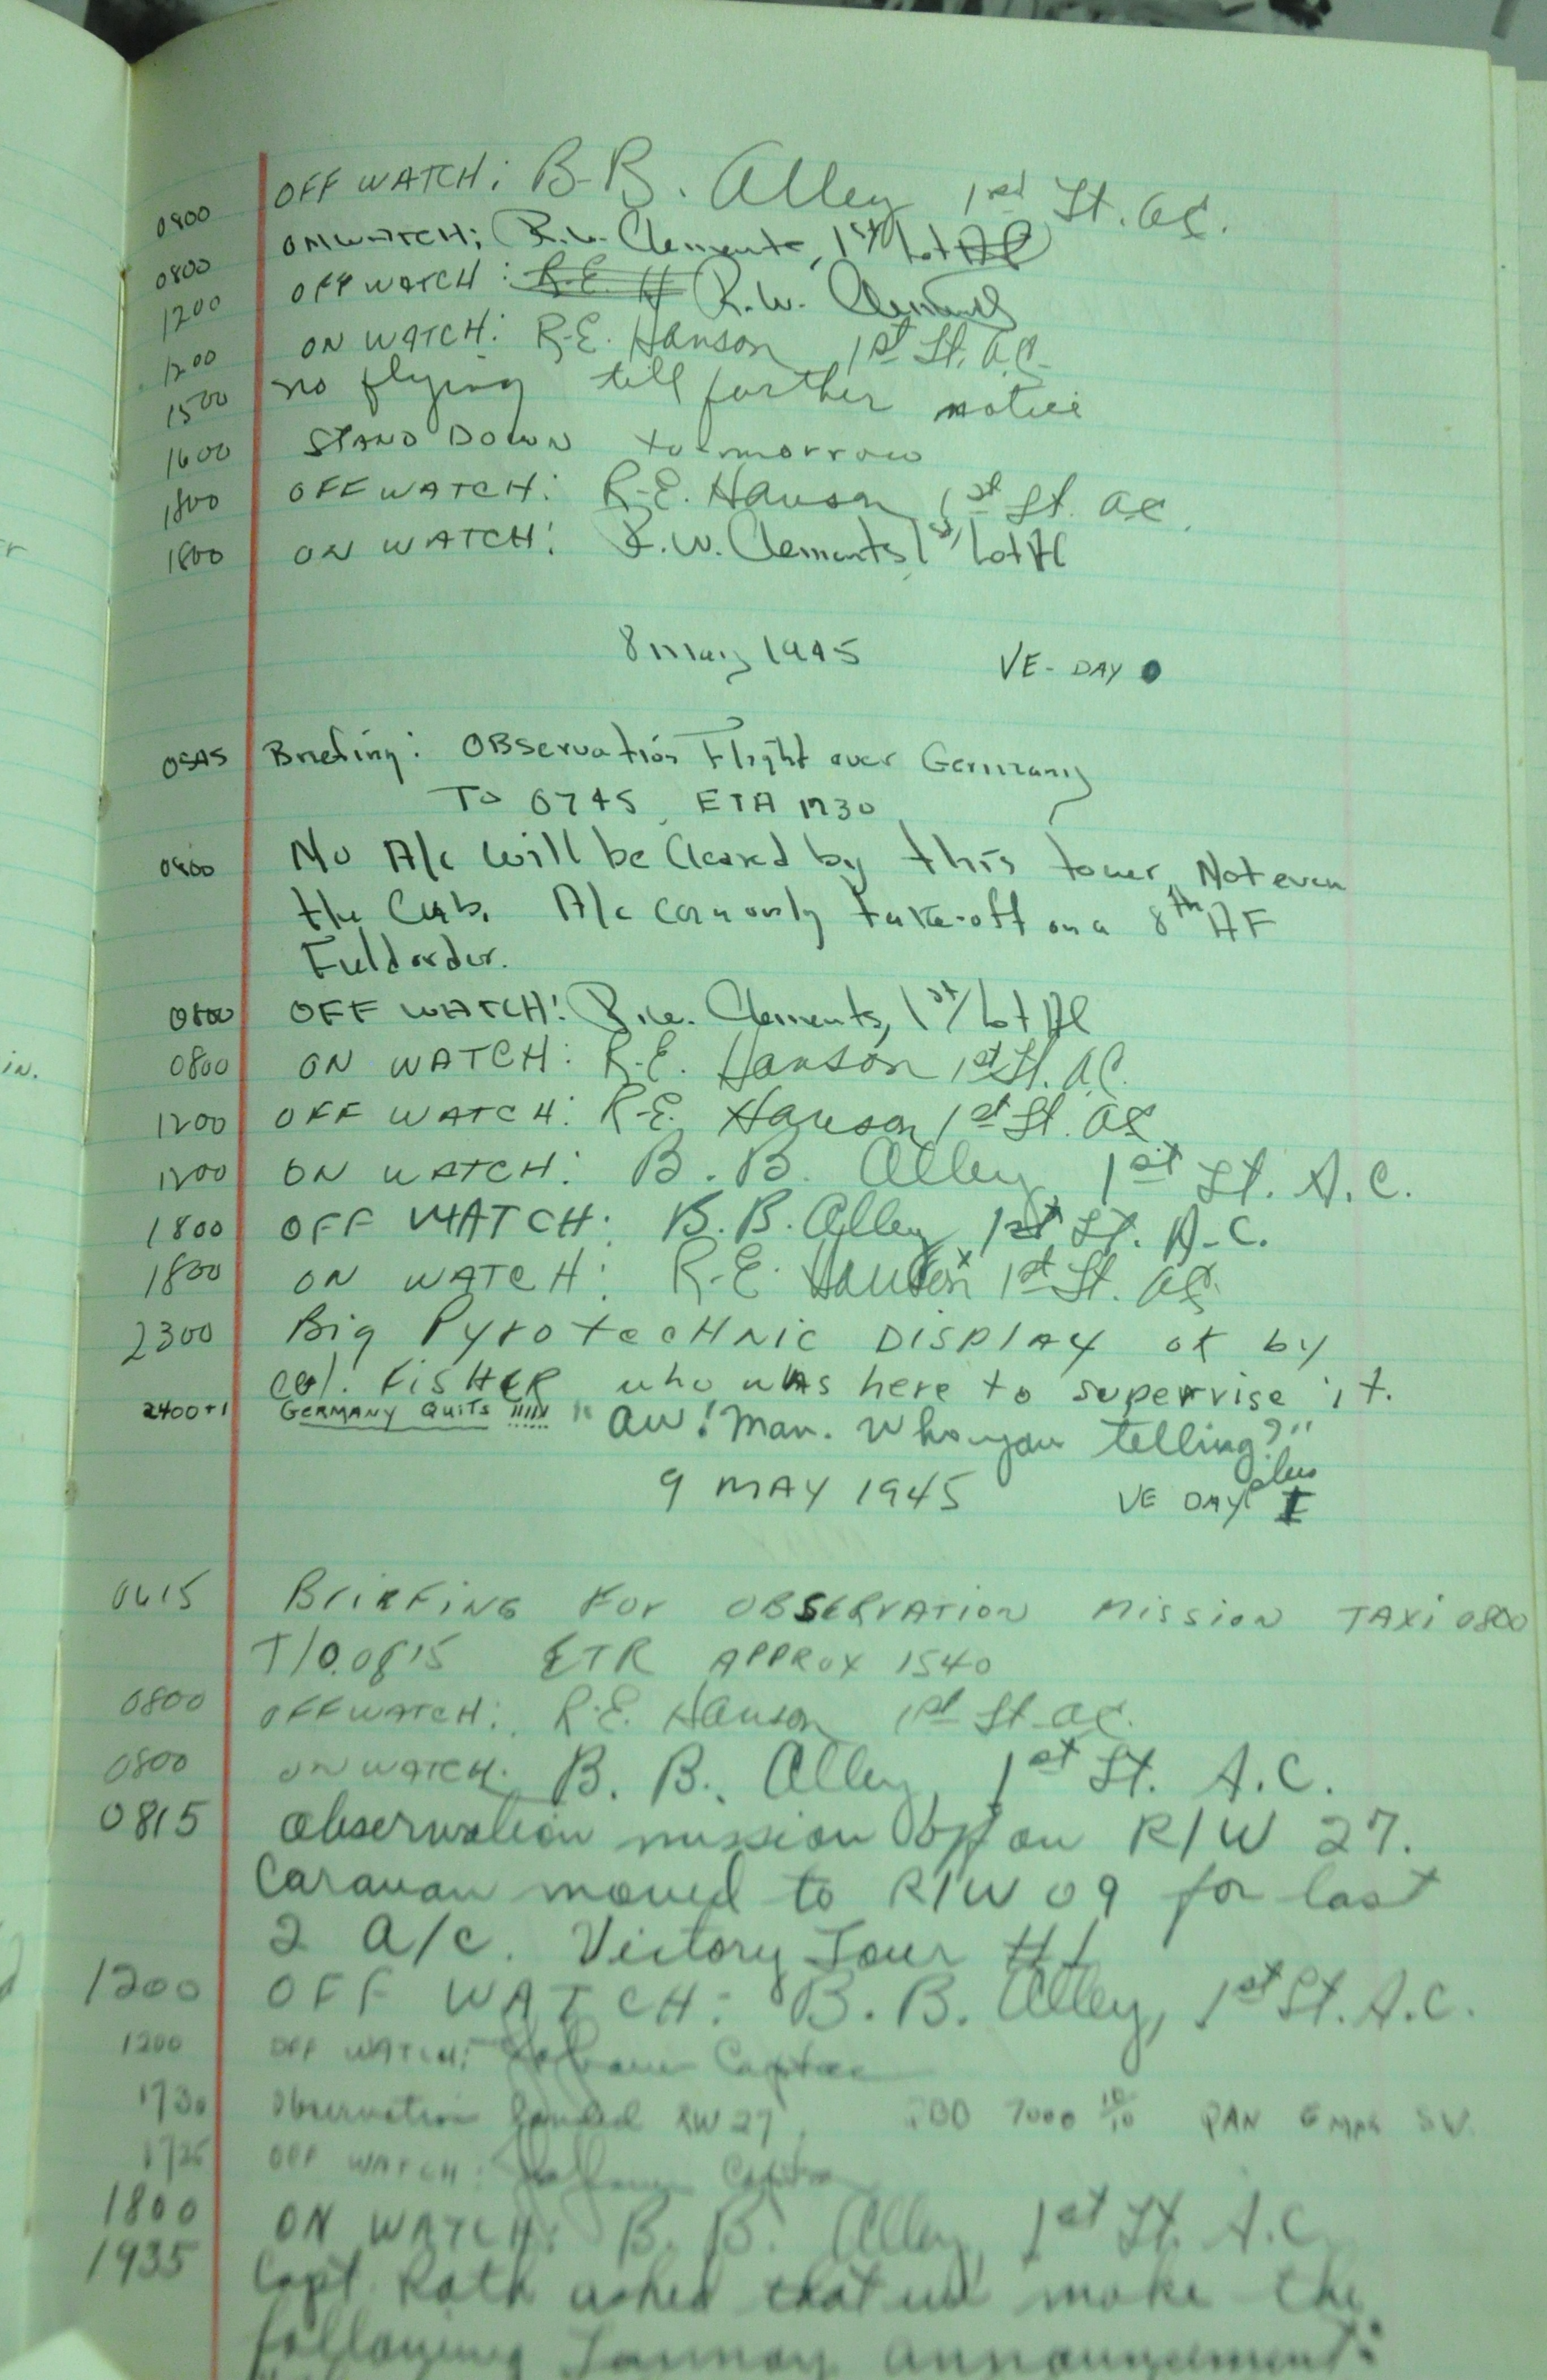 0800 OFF WATCH: B.B. Alley 1st Lt. AC.
0800 ON WATCH: R.W. Clements, 1st Lt AC
1200 OFF WATCH: R.E. H R.W. Clements
1200 ON WATCH: R.E. Hanson 1st Lt. A.C.
1500 no flying till further notice
1600 STAND DOWN tomorrow
1800 OFF WATCH: R.E. Hanson 1st Lt. AC.
1800 ON WATCH: R.W. Clements, 1st Lt AC
8 May 1945 VE-DAY 0
0545 Briefing: OBservation Flight over Germany
TO 0745, ETA 1730
0800 No A/c will be Cleared by this tower, Not even
the Cub. A/c can only take-off on a 8th AF
Field order.
0800 OFF WATCH: R.W. Clements, 1st Lt AC
0800 ON WATCH: R.E. Hanson 1st Lt. A.C.
1200 OFF WATCH: R.E. Hanson 1st Lt. AC
1200 ON WATCH: B.B. Alley 1st Lt. A.C.
1800 OFF WATCH: B.B. Alley 1st Lt. A.C.
1800 ON WATCH: R.E. Hanson 1st Lt. AC.
2300 Big PyrotecHNic DISPlAy by
col. FISHER who wAs here to supervise it.
2400+1 GERMANY QUITS !!!!! "Aw! Man. Who you telling?"
9 MAY 1945 VE DAY plus I
0615 BriEFiNG For OBSERVATION MISSION TAXI 0800
T/O.0815 ETR APPROX 1540
0800 OFF WATCH: R.E. Hanson 1st Lt. AC.
0800 ON WATCH: B.B. Alley, 1st Lt. A.C.
0815 Observation mission off on R/W 27.
Caravan moved to R/W 09 for last
2 A/C. Victory Tour #1
1200 OFF WATCH: B.B. Alley, 1st Lt. A.C.
1200 OFF WATCH:
1730 Observation landed RW 27, 7000 10/10
OFF WATCH:
1800 ON WATCH: B.B. Alley, 1st Lt. A.C.
1935 Capt. Roth asked that we make the
following Tannoy announcement:
in.